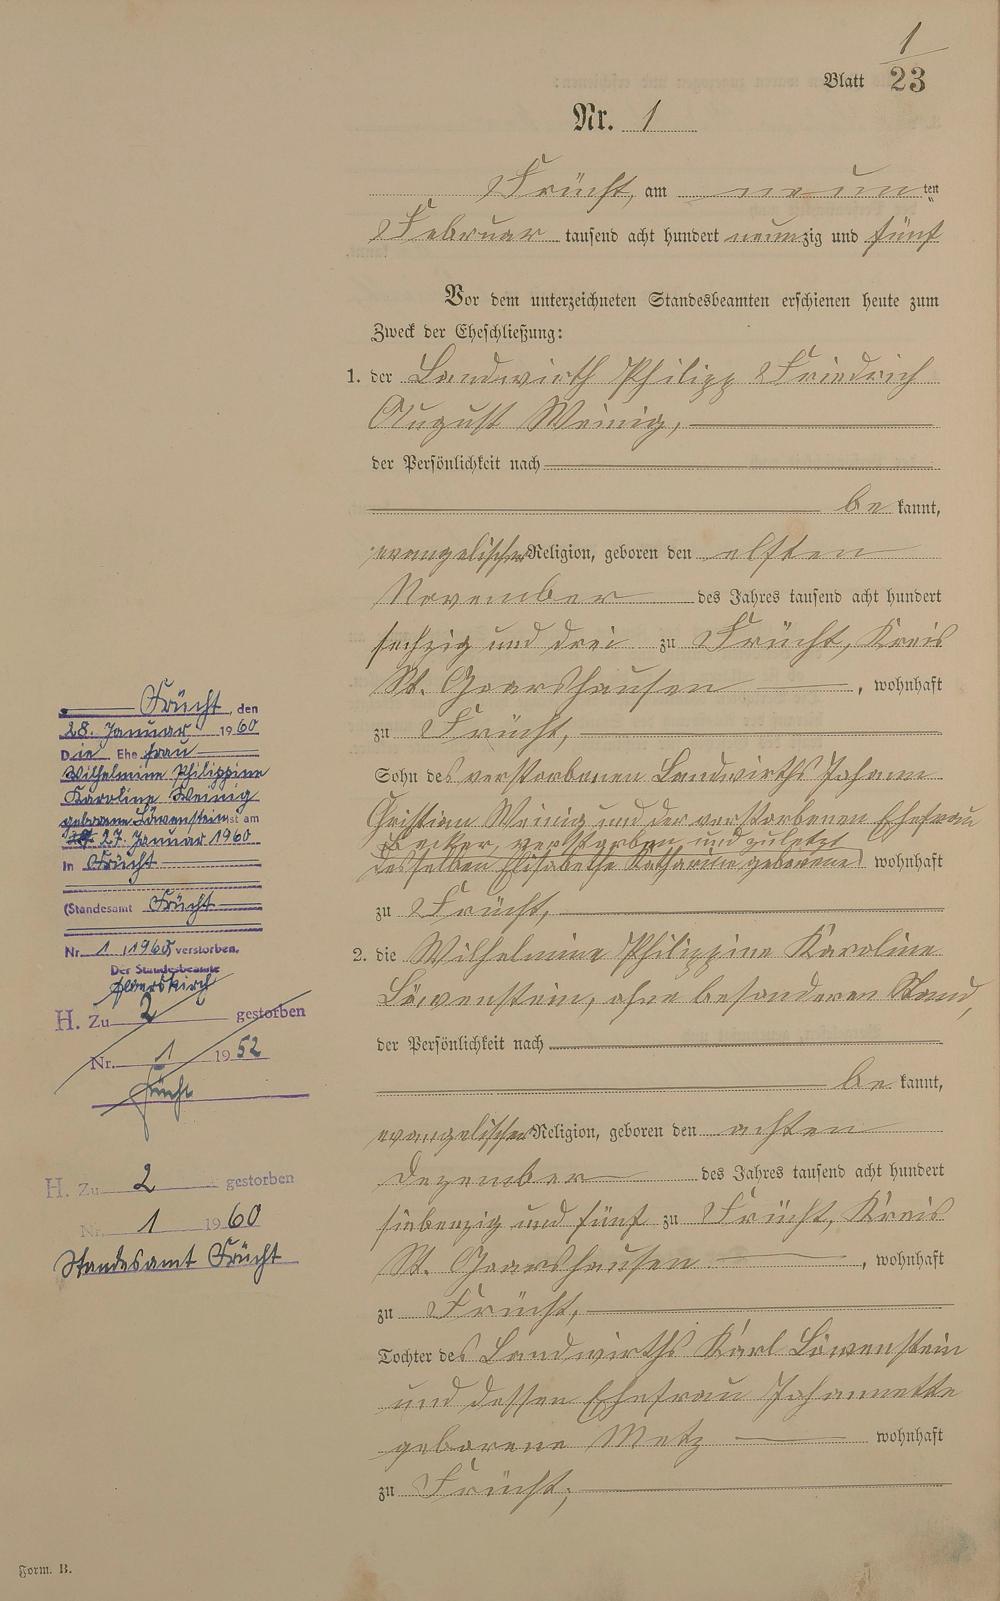 1
Blatt 23
Nr. 1
Frücht, am neunten
Februar tausend acht hundert neunzig und fünf
Vor dem unterzeichneten Standesbeamten erschienen heute zum
Zweck der Eheschließung:
1. der Landwirth Philipp Friedrich
August Weinig,
der Persönlichkeit nach
be kannt,
evangelischer Religion, geboren den elften
November des Jahres tausend acht hundert
sechzig und drei zu Frücht, Kreis
St. Goarshausen, wohnhaft
zu Frücht,
Sohn des verstorbenen Landwirths Johann
Christian Weinig und der verstorbenen Ehefrau
desselben Elisabethe Katharine geborene
Becker, verstorben und zuletzt wohnhaft
zu Frücht,
2. die Wilhelmine Philippine Karoline
Löwenstein, ohne besonderen Stand,
der Persönlichkeit nach
be kannt,
evangelischer Religion, geboren den achten
Dezember des Jahres tausend acht hundert
siebenzig und fünf zu Frücht, Kreis
St. Goarshausen, wohnhaft
zu Frücht,
Tochter des Landwirths Karl Löwenstein
und dessen Ehefrau Johannette
geborene Metz wohnhaft
zu Frücht,
Frücht, den
28. Januar 1960
Die Ehefrau
Wilhelmine Philippine
Karoline Weinig
geborene Löwenstein ist am
27. Januar 1960
in Frücht
(Standesamt Frücht
Nr. 1/1960 verstorben.
Der Standesbeamte
H. Zu 2 gestorben
Nr. 1 1952
Frücht
H. Zu 2 gestorben
Nr. 1 1960
Standesamt Frücht
Form. B.